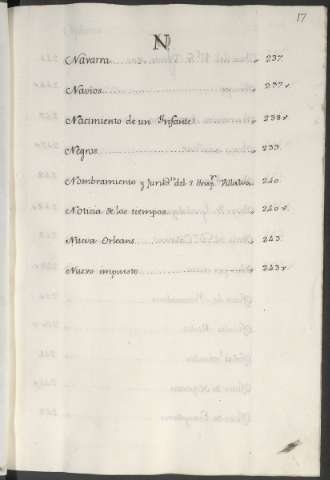 17
N
Navarra 237.
Navios 237.v
Nacimiento de un Ynfante 238.v
Negros 239.
Nombramiento y del Villalva 240.
Noticia de los tiempos 240.v
Nueva Orleans 243.
Nuevo impuesto 243.v